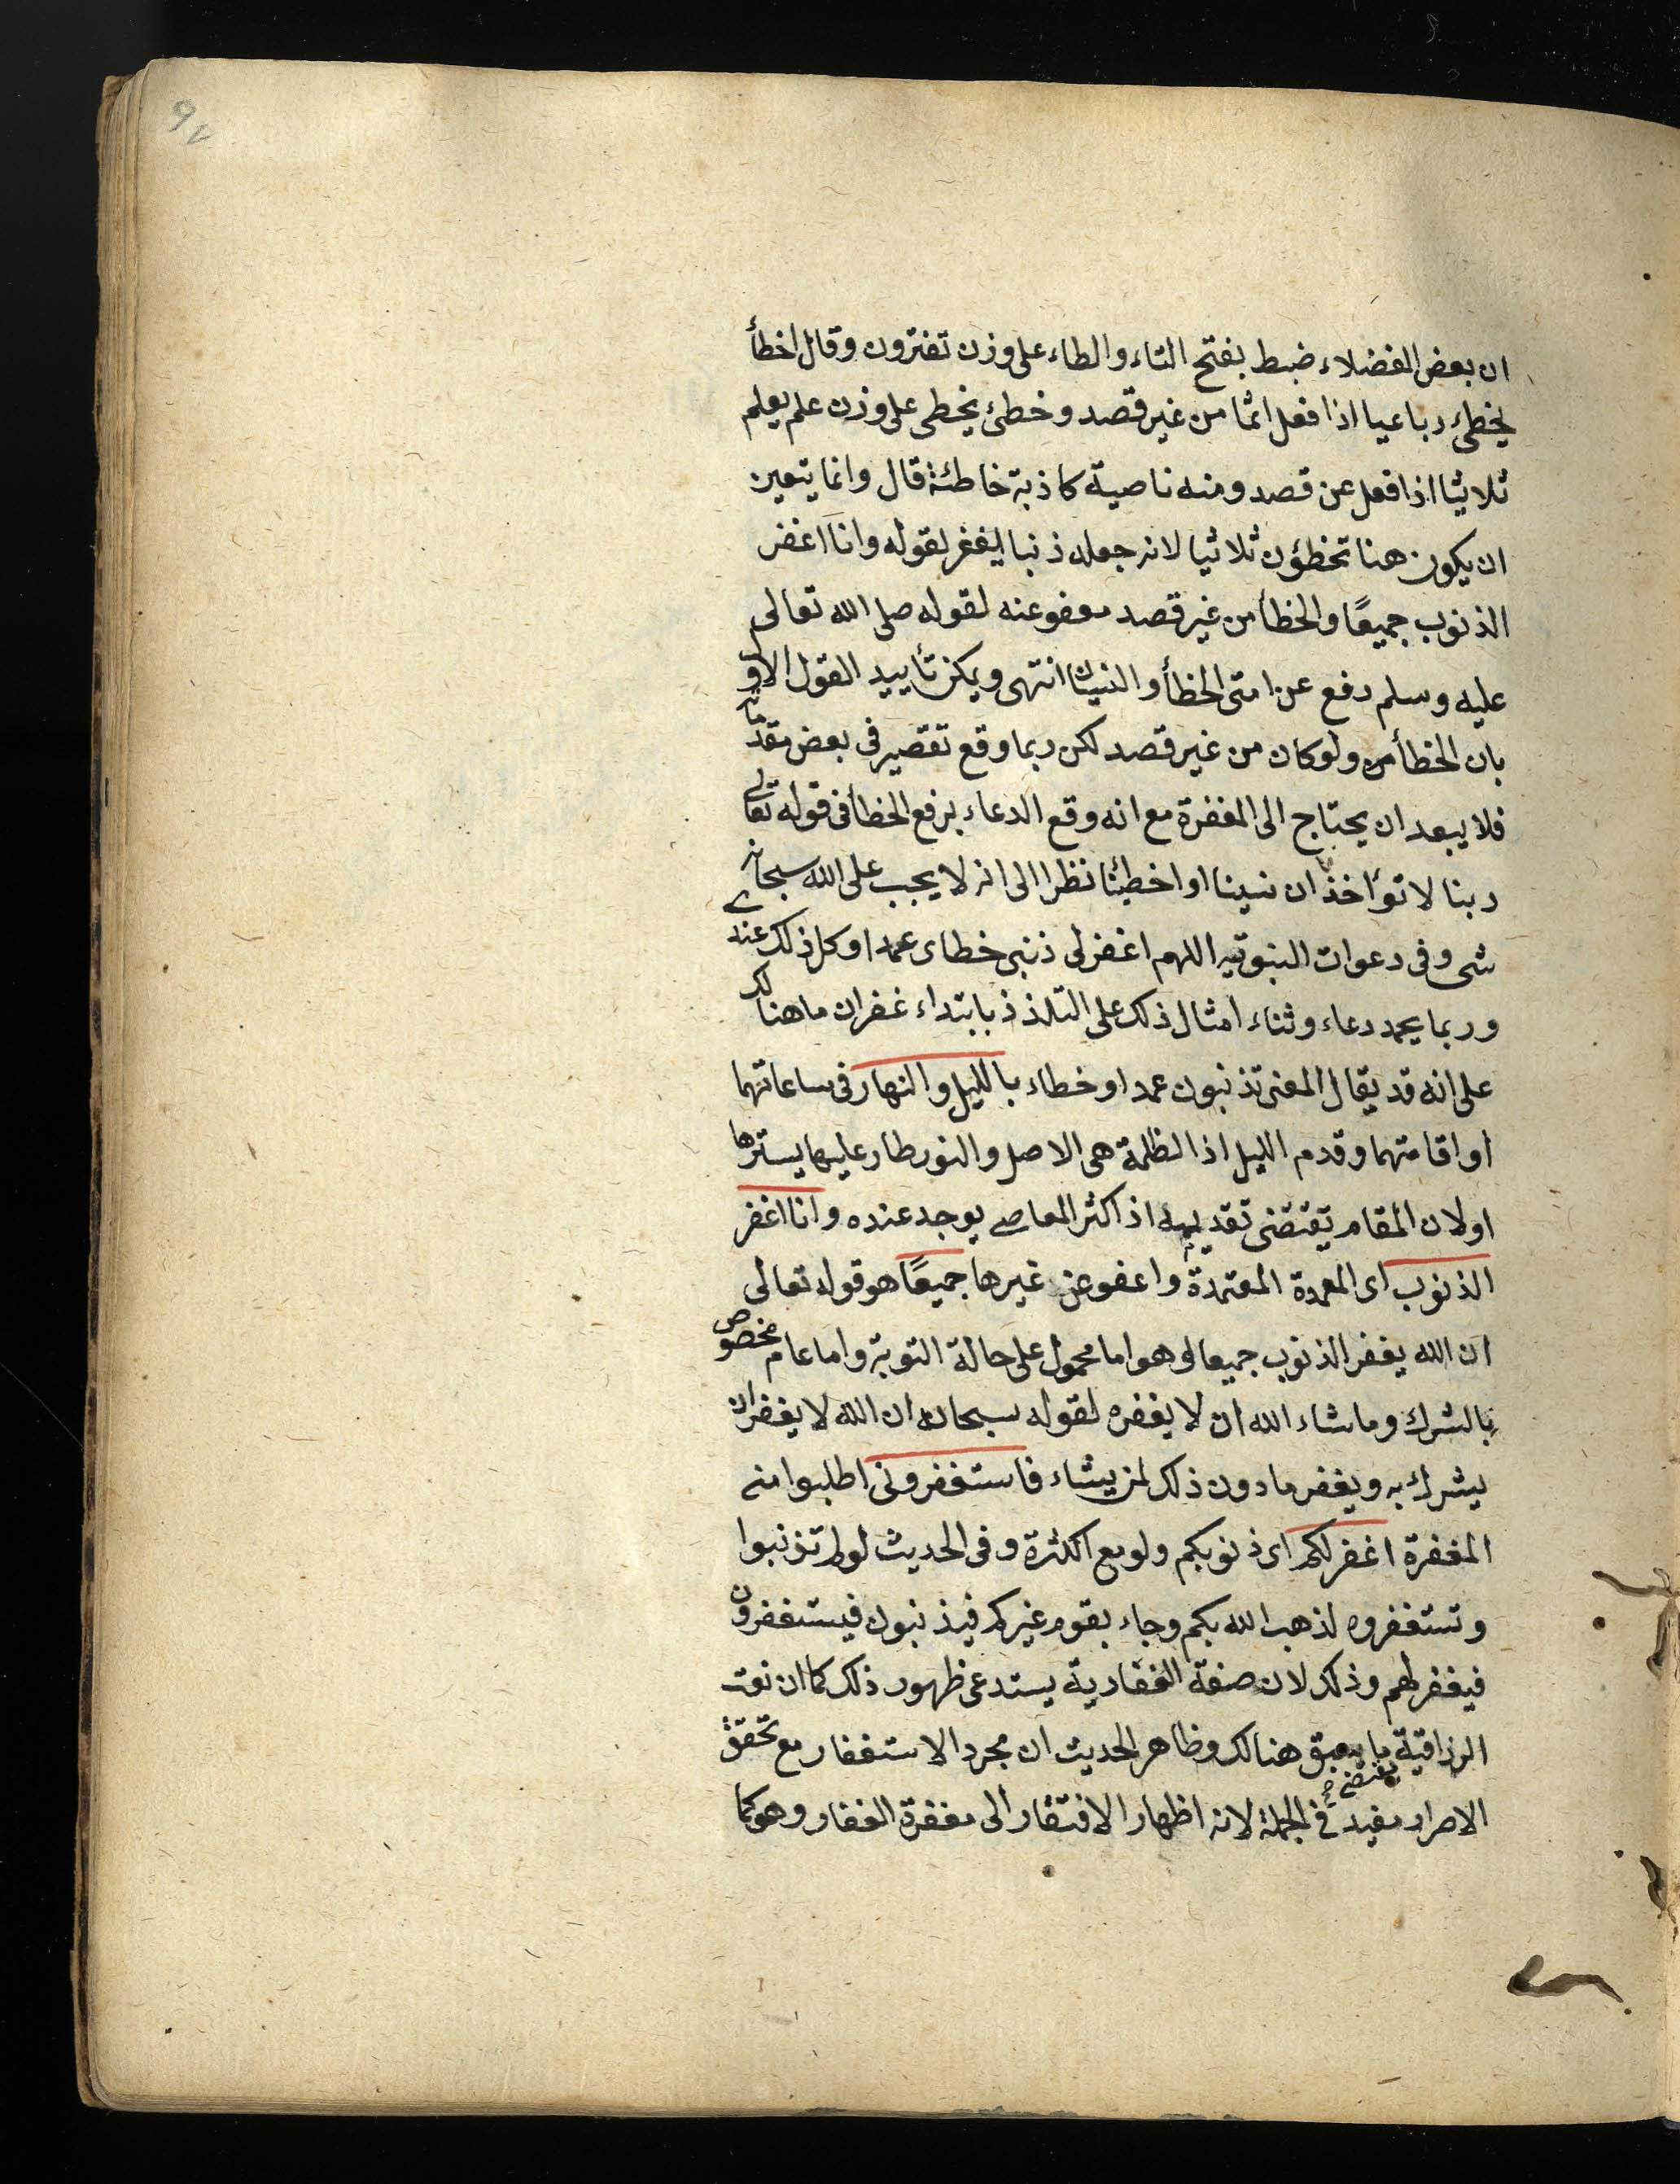 97
ان بعض الفضلاء ضبط بفتح التاء والطاء على وزن تفترون وقال اخطأ
يخطئ رباعيا اذا فعل اثما من غير قصد وخطئ يخطى على وزن علم يعلم
ثلاثيا اذا فعل عن قصد ومنه ناصية كاذبة خاطئة قال وانما يتعين
ان يكون هنا تخطؤن ثلاثيا لانه جعله ذنبا ليغفر لقوله وانا اغفر
الذنوب جميعًا والخطأ من غير قصد معفو عنه لقوله صلى الله تعالى
عليه وسلم رفع عن امتى الخطأ والنسيان انتهى ويمكن تأييد القول الاول
بان الخطأ ولو كان من غير قصد لكن ربما وقع تقصير فى بعض مقدماته
فلا يبعد ان يحتاج الى المغفرة مع انه وقع الدعاء برفع الخطأ فى قوله تعالى
ربنا لا تؤاخذنا ان نسينا او اخطئنا نظرا الى انه لا يجب على الله سبحانه
شى وفى دعوات النبوتيه اللهم اغفر لى ذنبى خطاى عمدا وكل ذلك عندى
وربما يحمد دعاء وثناء امثال ذلك على التلذذ بابتداء غفران ما هنالك
على انه قد يقال المعنى تذنبون عمدا وخطاء بالليل والنهار فى ساعاتهما
او اقامتهما وقدم الليل اذ الظلمة هى الاصل والنور طار عليها يسترها
او لان المقام يقتضى تقديمه اذ اكثر المعاصى يوجد عنده وانا اغفر
الذنوب اى المعمدة المعتمدة واعفو عن غيرها جميعًا هو قوله تعالى
ان الله يغفر الذنوب جميعا وهو اما محمول على حالة التوبة واما عام مخصوص
بالشرك وما شاء الله ان لا يغفره لقوله سبحانه ان الله لا يغفر ان
يشرك به ويغفر ما دون ذلك لمن يشاء فاستغفرونى اطلبوا منى
المغفرة اغفر لكم اى ذنوبكم ولو مع الكثرة وفى الحديث لو لم تذنبوا
وتستغفروه لذهب الله بكم وجاء بقوم غيركم فيذنبون فيستغفرون
فيغفر لهم وذلك لان صفة الغفارية يستدعى ظهور ذلك كما ان نعت
الرزاقية يقتضى هنالك وظاهر الحديث ان مجرد الاستغفار مع تحقق
الاصرار مفيد فى الجملة لانه اظهار الافتقار الى مغفرة الغفار وهو كما